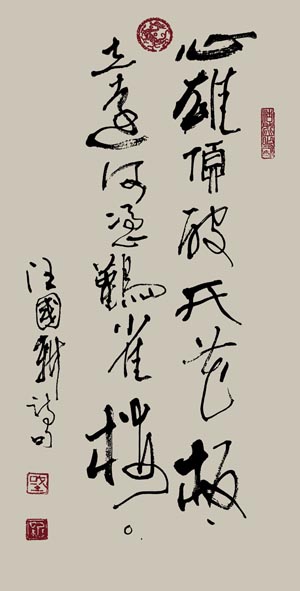 心雄頂破天花板、
志遠何憑鸛雀樓。
汪國新詩句